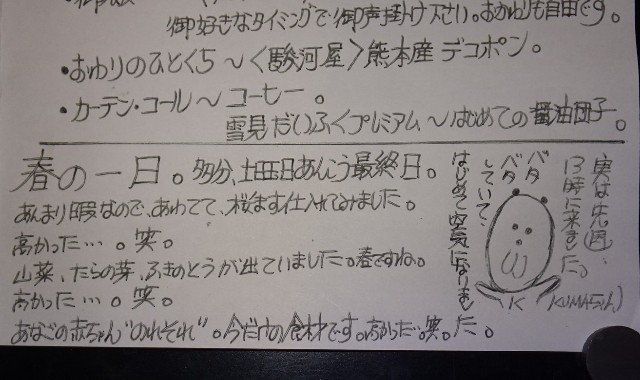 御好きなタイミングで御声掛け下さい。おかわりも自由です。
・おわりのひとくち～〈駿河屋〉熊本産デコポン。
・カーテン・コール～コーヒー。
雪見だいふくプレミアム～はじめての醤油団子。
春の一日。多分、土曜日あんこう最終日。
あんまり暇なので、あわてて、桜ます仕入れてみました。
高かった…。笑。
山菜、たらの芽、ふきのとうが出ていました。春ですね。
高かった…。笑。
あなごの赤ちゃん"のれそれ"。今だけの食材です。高かった…。笑。
実は先週、
13時に来ました。
バタ
バタ
していて、
はじめて空気になりました。
K KUMAちゃん)